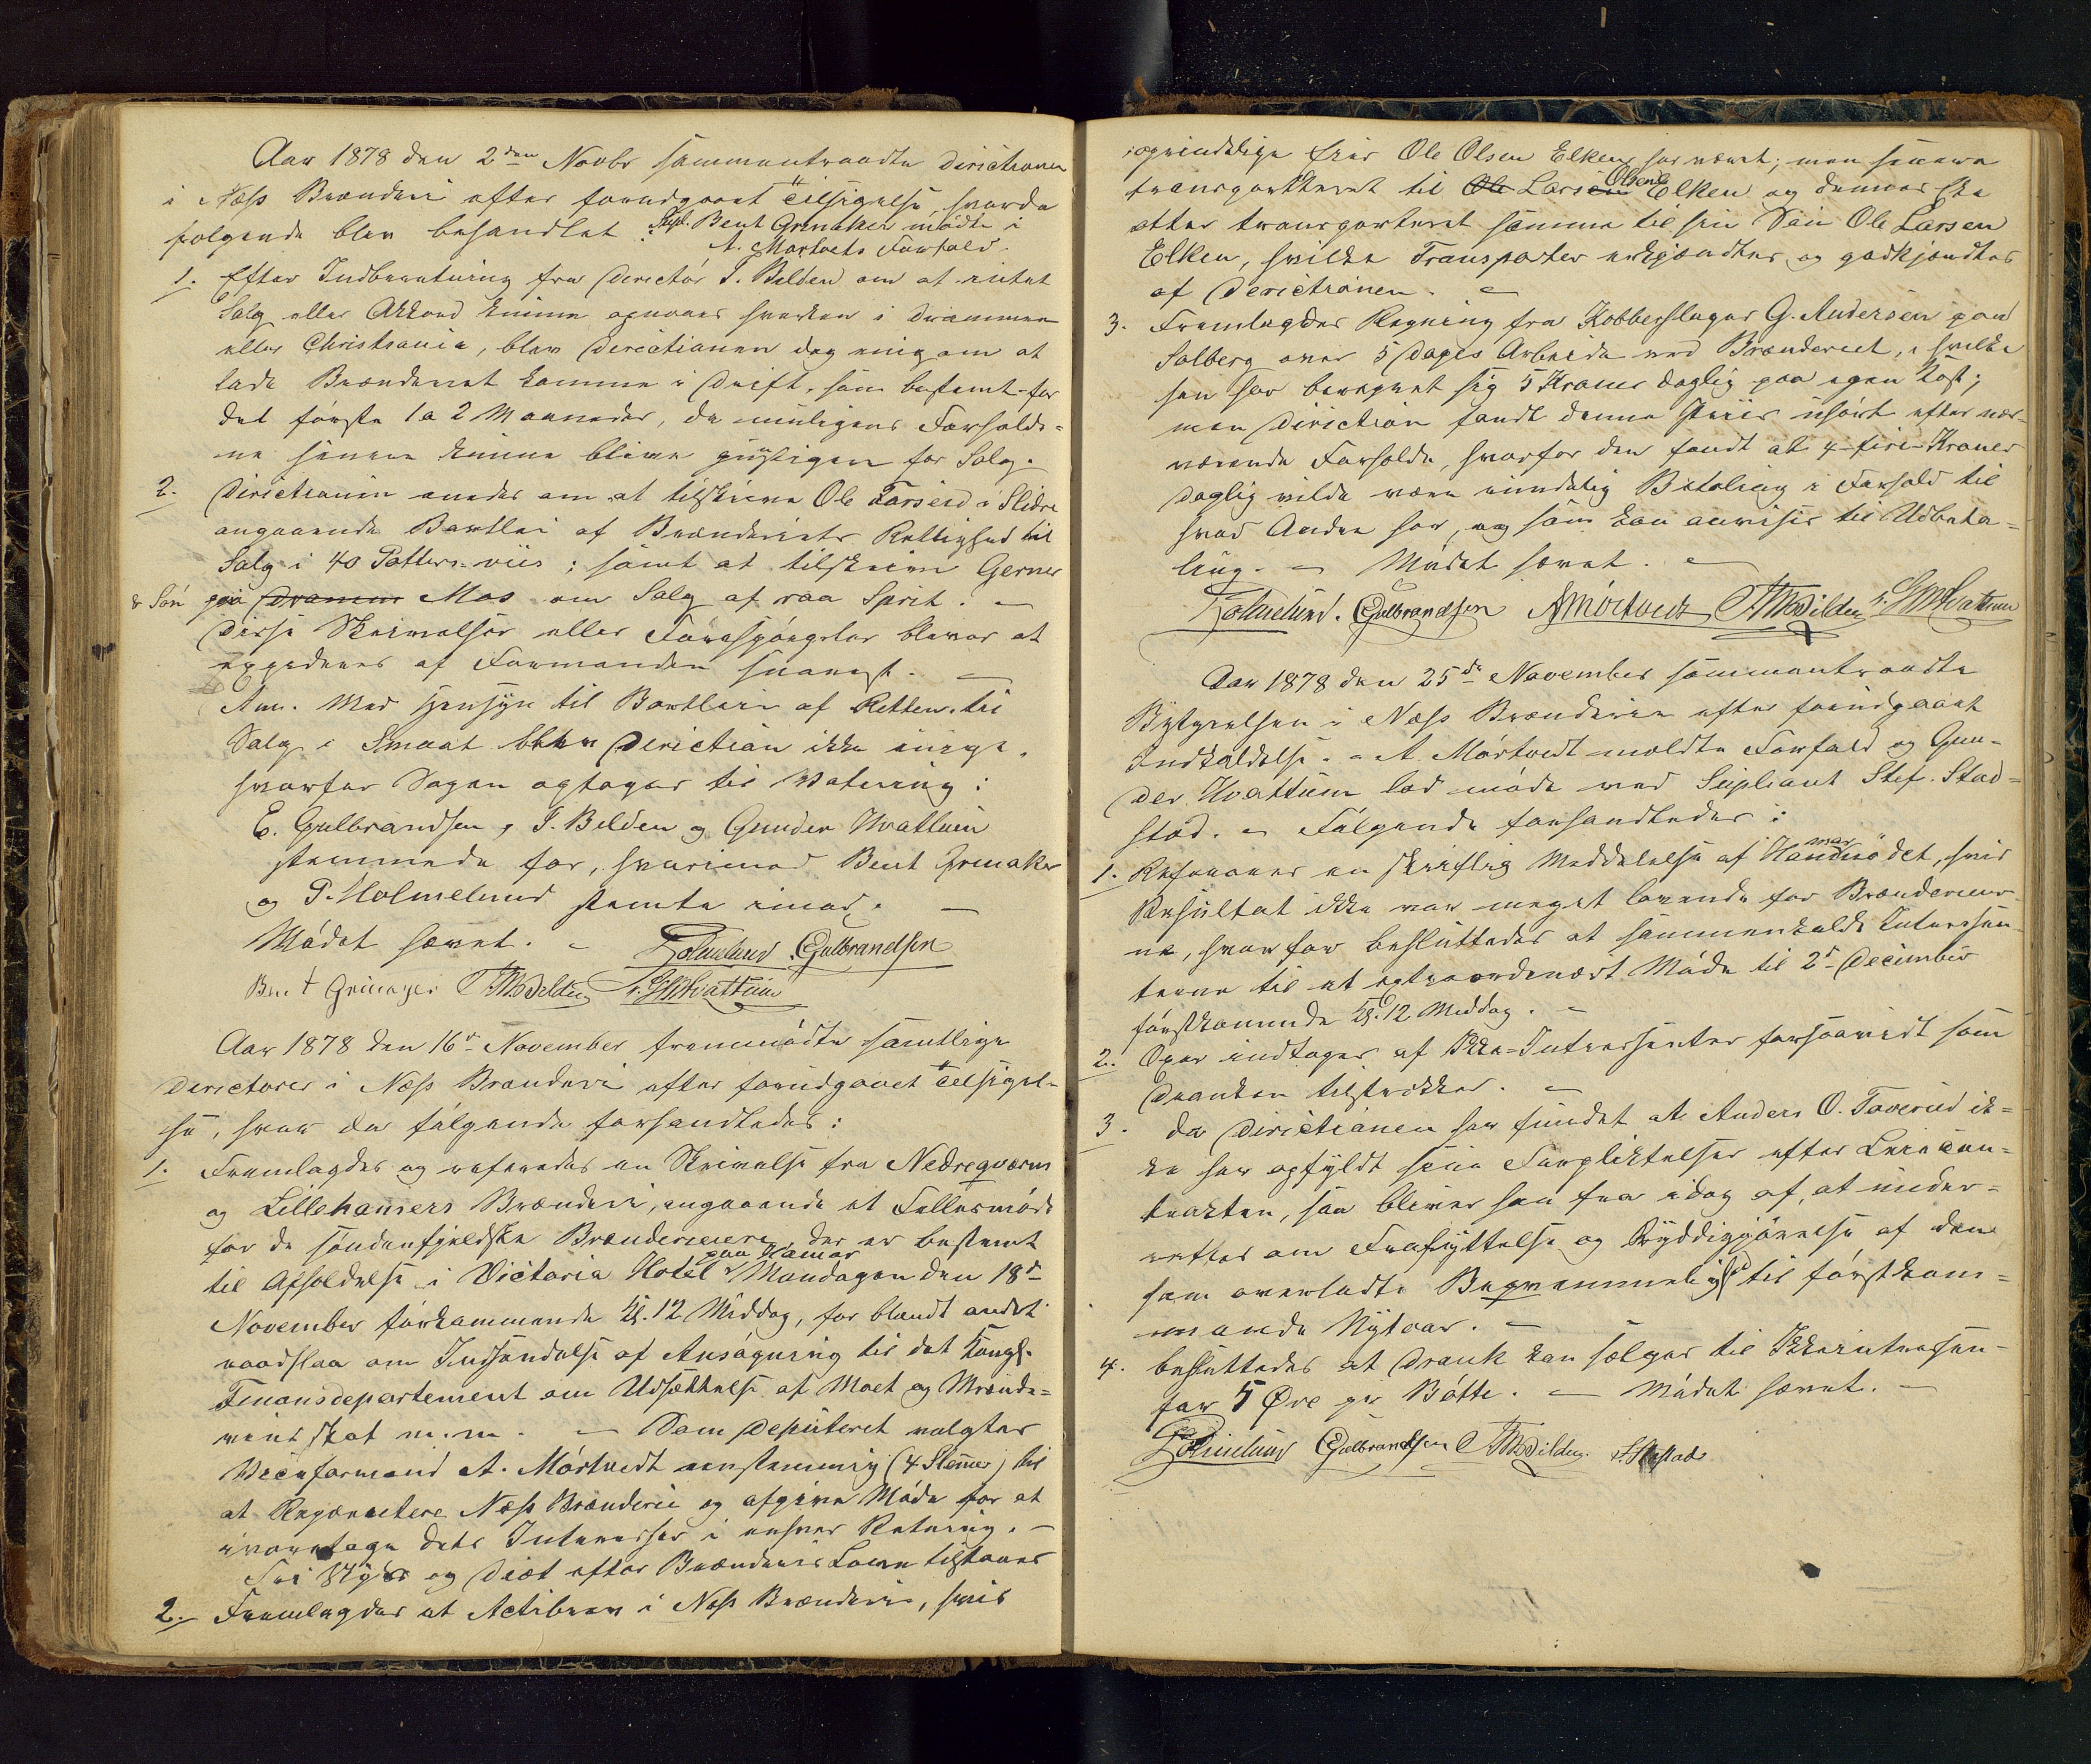 Aar 1878 den 2den Novbr sammentraadte Directionen
i Næss Brænderi efter forudgaaet Tilsigelse, hvorda
følgende blev behandlet: Supl. Bent Grenaker mødte i
A. Mortvets Forfald.
1. Efter Indberetning fra Director T. Belden om at intet
Salg eller Akkord kunne opnaaes hverken i Drammen
eller Christiania, blev Directionen dog enig om at
lade Brænderiet komme i Drift, som bestemt for
det første 1 a 2 Maaneder, da muligens Forholde-
ne senere kunne blive gunstigere for Salg.
2. Directionen enedes om at tilskrive Ole Tarserd i Slidre
angaaende Bortleie af Brænderiets Rettighed til
Salg i 40 Potterviis; samt at tilskrive Gerner
& Søn paa Dramme Mos om Salg af raa Sprit. —
Disse Skrivelser eller Forespørgsler bliver at
expederes af Formanden snarest. —
Anm. Med Hensyn til Bortleie af Retten til
Salg i Smaat blev Direction ikke enige,
hvorfor Sagen optages til Votering:
E. Gulbrandsen, T. Belden og Gunder Hvattum
stemmede for, hvorimod Bent Grenaker
og P. Holmelund stemte imod. —
Mødet hævet. — PHolmelund. EGulbrandsen
Bent Grinager TMBelden GHHvattum
Aar 1878 den 16de November fremmødte samtlige
Directører i Næss Brænderi efter forudgaaet Tilsigel-
se, hvor da følgende forhandledes:
1. Fremlagdes og refereredes en Skrivelse fra Nedreqværns
og Lillehamers Brænderi, angaaende et Fellesmøde
for de søndenfjeldske Brænderieiere, der er bestemt
til Afholdelse i Victoria Hotel paa Hamar Mandagen den 18de
November førkommende Kl. 12 Middag, for blandt andet
raadslaa om Indsendelse af Ansøgning til det Kongl.
Finansdepartement om Udsættelse af Malt og Brænde-
vinsskat m.m. — Som Deputeret valgtes
Viceformand A. Mørtvedt eenstemmig (4 Stemer) til
at Repræsentere Næss Brænderi og afgive Møde for at
ivaretage dets Interesser i enhver Retning. —
Fri Skyds og Diæt efter Brænderiets Love tilstaaes
2. Fremlagdes et Actiebrev i Næss Brænderi, hvis
oprindelige Eier Ole Olsen Elken har været; men senere
transporteret til Ole Larsen Olsen Elken og dennes ske
atter transporteret samme til sin Søn Ole Larsen
Elken, hvilke Transporter erkjendtes og godkjendtes
af Directionen. —
3. Fremlagdes Regning fra Kobberslager G. Andersen paa
Solberg over 5 Dages Arbeide ved Brænderiet, i hvilke
han har beregnet sig 5 Kroner daglig paa egen Kost;
men Direction fandt denne Priis uhørt efter nær-
værende Forholde, hvorfor den fandt at 4 - fire - Kroner
daglig vilde være rimelig Betaling i Forhold til
hvad Andre har, og som kan anvises til Udbeta-
ling. — Mødet hævet. —
PHolmelund. EGulbrandsen AMörtvedt TMBelden GHHvattum
Aar 1878 den 25de November sammentraadte
Bestyrelsen i Næss Brænderie efter forudgaaet
Indkaldelse. - A. Mørtvedt meldte Forfald og Gun-
der Hvattum lod møde ved Supleant Stef. Stad-
stad. - Følgende forhandledes:
1. Refereres en skriftlig Meddelelse af Hamarmødet, hvis
Resultat ikke var meget lovende for Brænderier-
ne, hvorfor besluttedes at sammenkalde Interessen-
terne til et extraordenært Møde til 2de December
førstkommende Kl. 12 Middag. —
2. Oxer indtages af Ikke-Interessenter forsaavidt som
Dranken tilstrækker. —
3. Da Directionen har fundet at Anders O. Taverud ik-
ke har opfyldt sine Forpliktelser efter Leiecon-
trakten, saa bliver han fra idag af, at under-
rettes om Fraflyttelse og Ryddiggjørelse af den
ham overladte Beqvemmelighed til førstkom-
mende Nytaar. —
4. besluttedes at Drank kan sælges til Ikkeinteressen-
for 5 Øre pr Bøtte. — Mødet hævet. —
PHolmelund EGulbrandsen TMBelden. S. Stastad